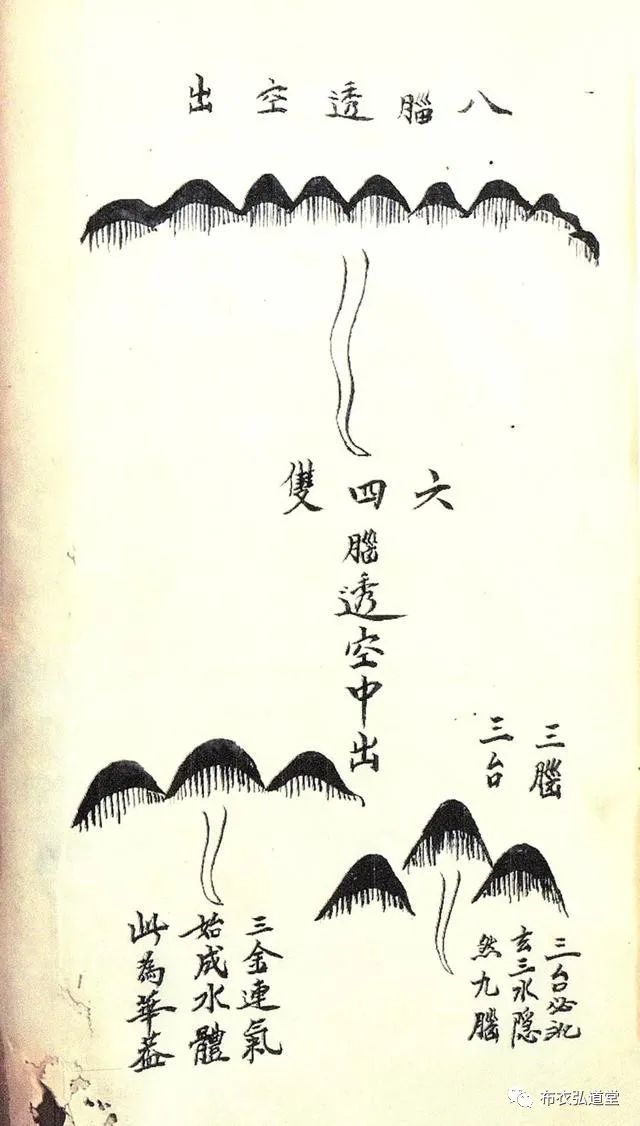 八腦透空出
六四雙
腦透空中出
三腦
三台
三台必
玄三水隱
然九腦
三金連氣
始成水體
此為華蓋
布衣弘道堂